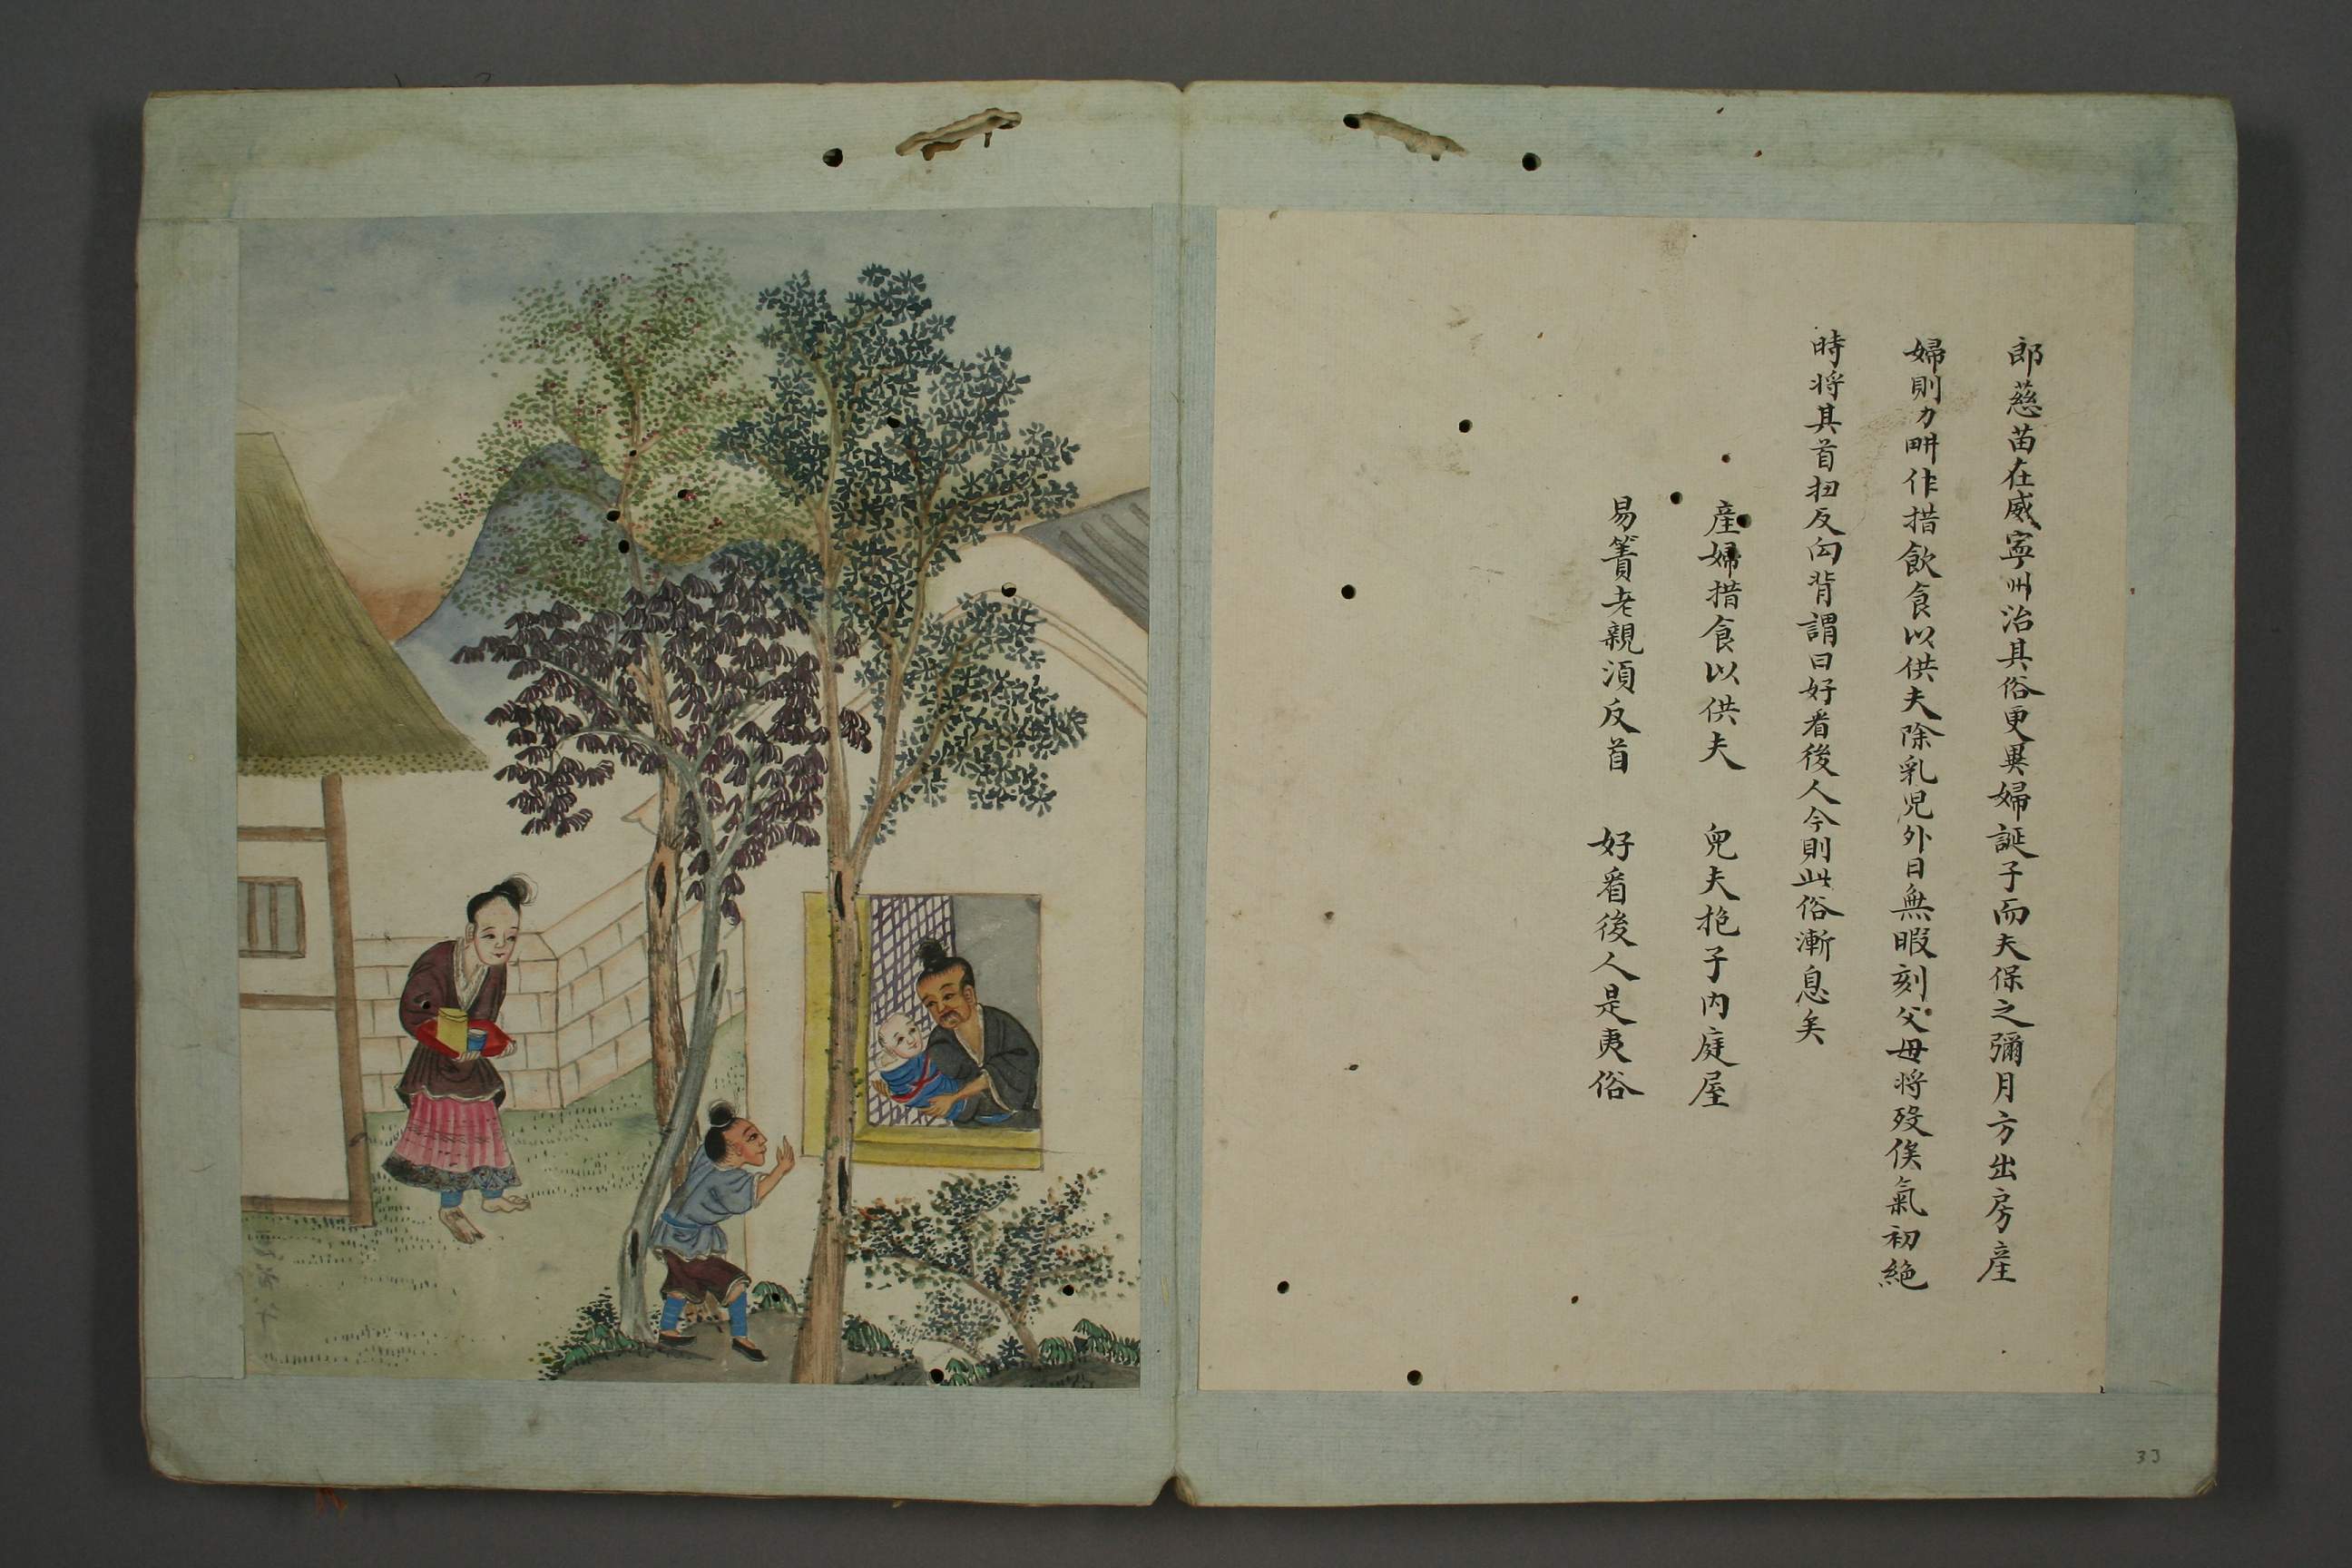 郎慈苗在威寧州治其俗更異婦誕子而夫保之彌月方出房産
婦則力畊作措飲食以供夫除乳児外日無暇刻父母将歿俟氣初絶
時将其首扭反向背謂曰好看後人今則此俗漸息矣
産婦措食以供夫 兒夫抱子内庭屋
易簀老親湏反首 好看後人是夷俗
33